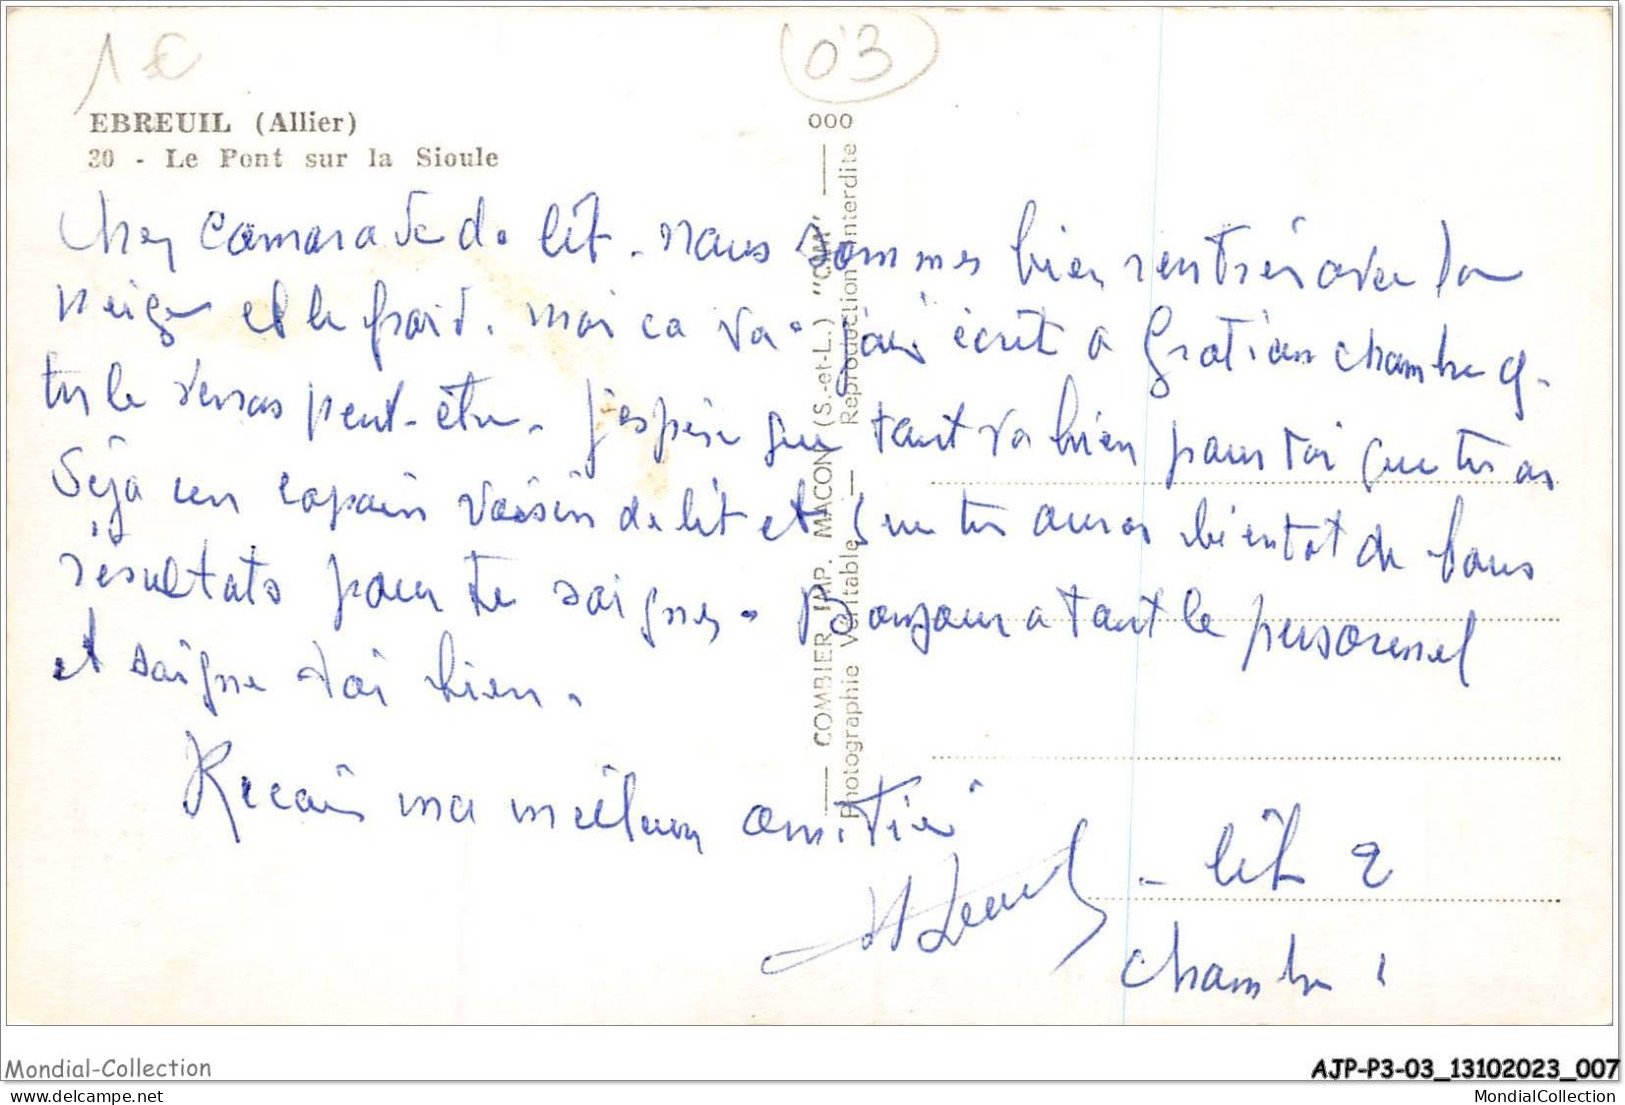 1 €
03
EBREUIL (Allier)
30 - Le Pont sur la Sioule
000
COMBIER IMP. MACON (S.-et-L.) "CIM"
Photographie Véritable — Reproduction Interdite
Cher camarade de lit. nous sommes bien rentrés avec la
neige et le froid. moi ca va. j'ai écrit a Gratian chambre 9.
tu le verras peut-être. J'espère que tout va bien pour toi que tu as
déja un copain voisin de lit et que tu auras bientot de bons
résultats pour te soigner. Bonjour a tout le personnel
et soigne toi bien.
Recois ma meilleur amitié
- lit 2
chambre 1
Mondial-Collection
AJP-P3-03_13102023_007
mondial-collection.delcampe.com
MondialCollection